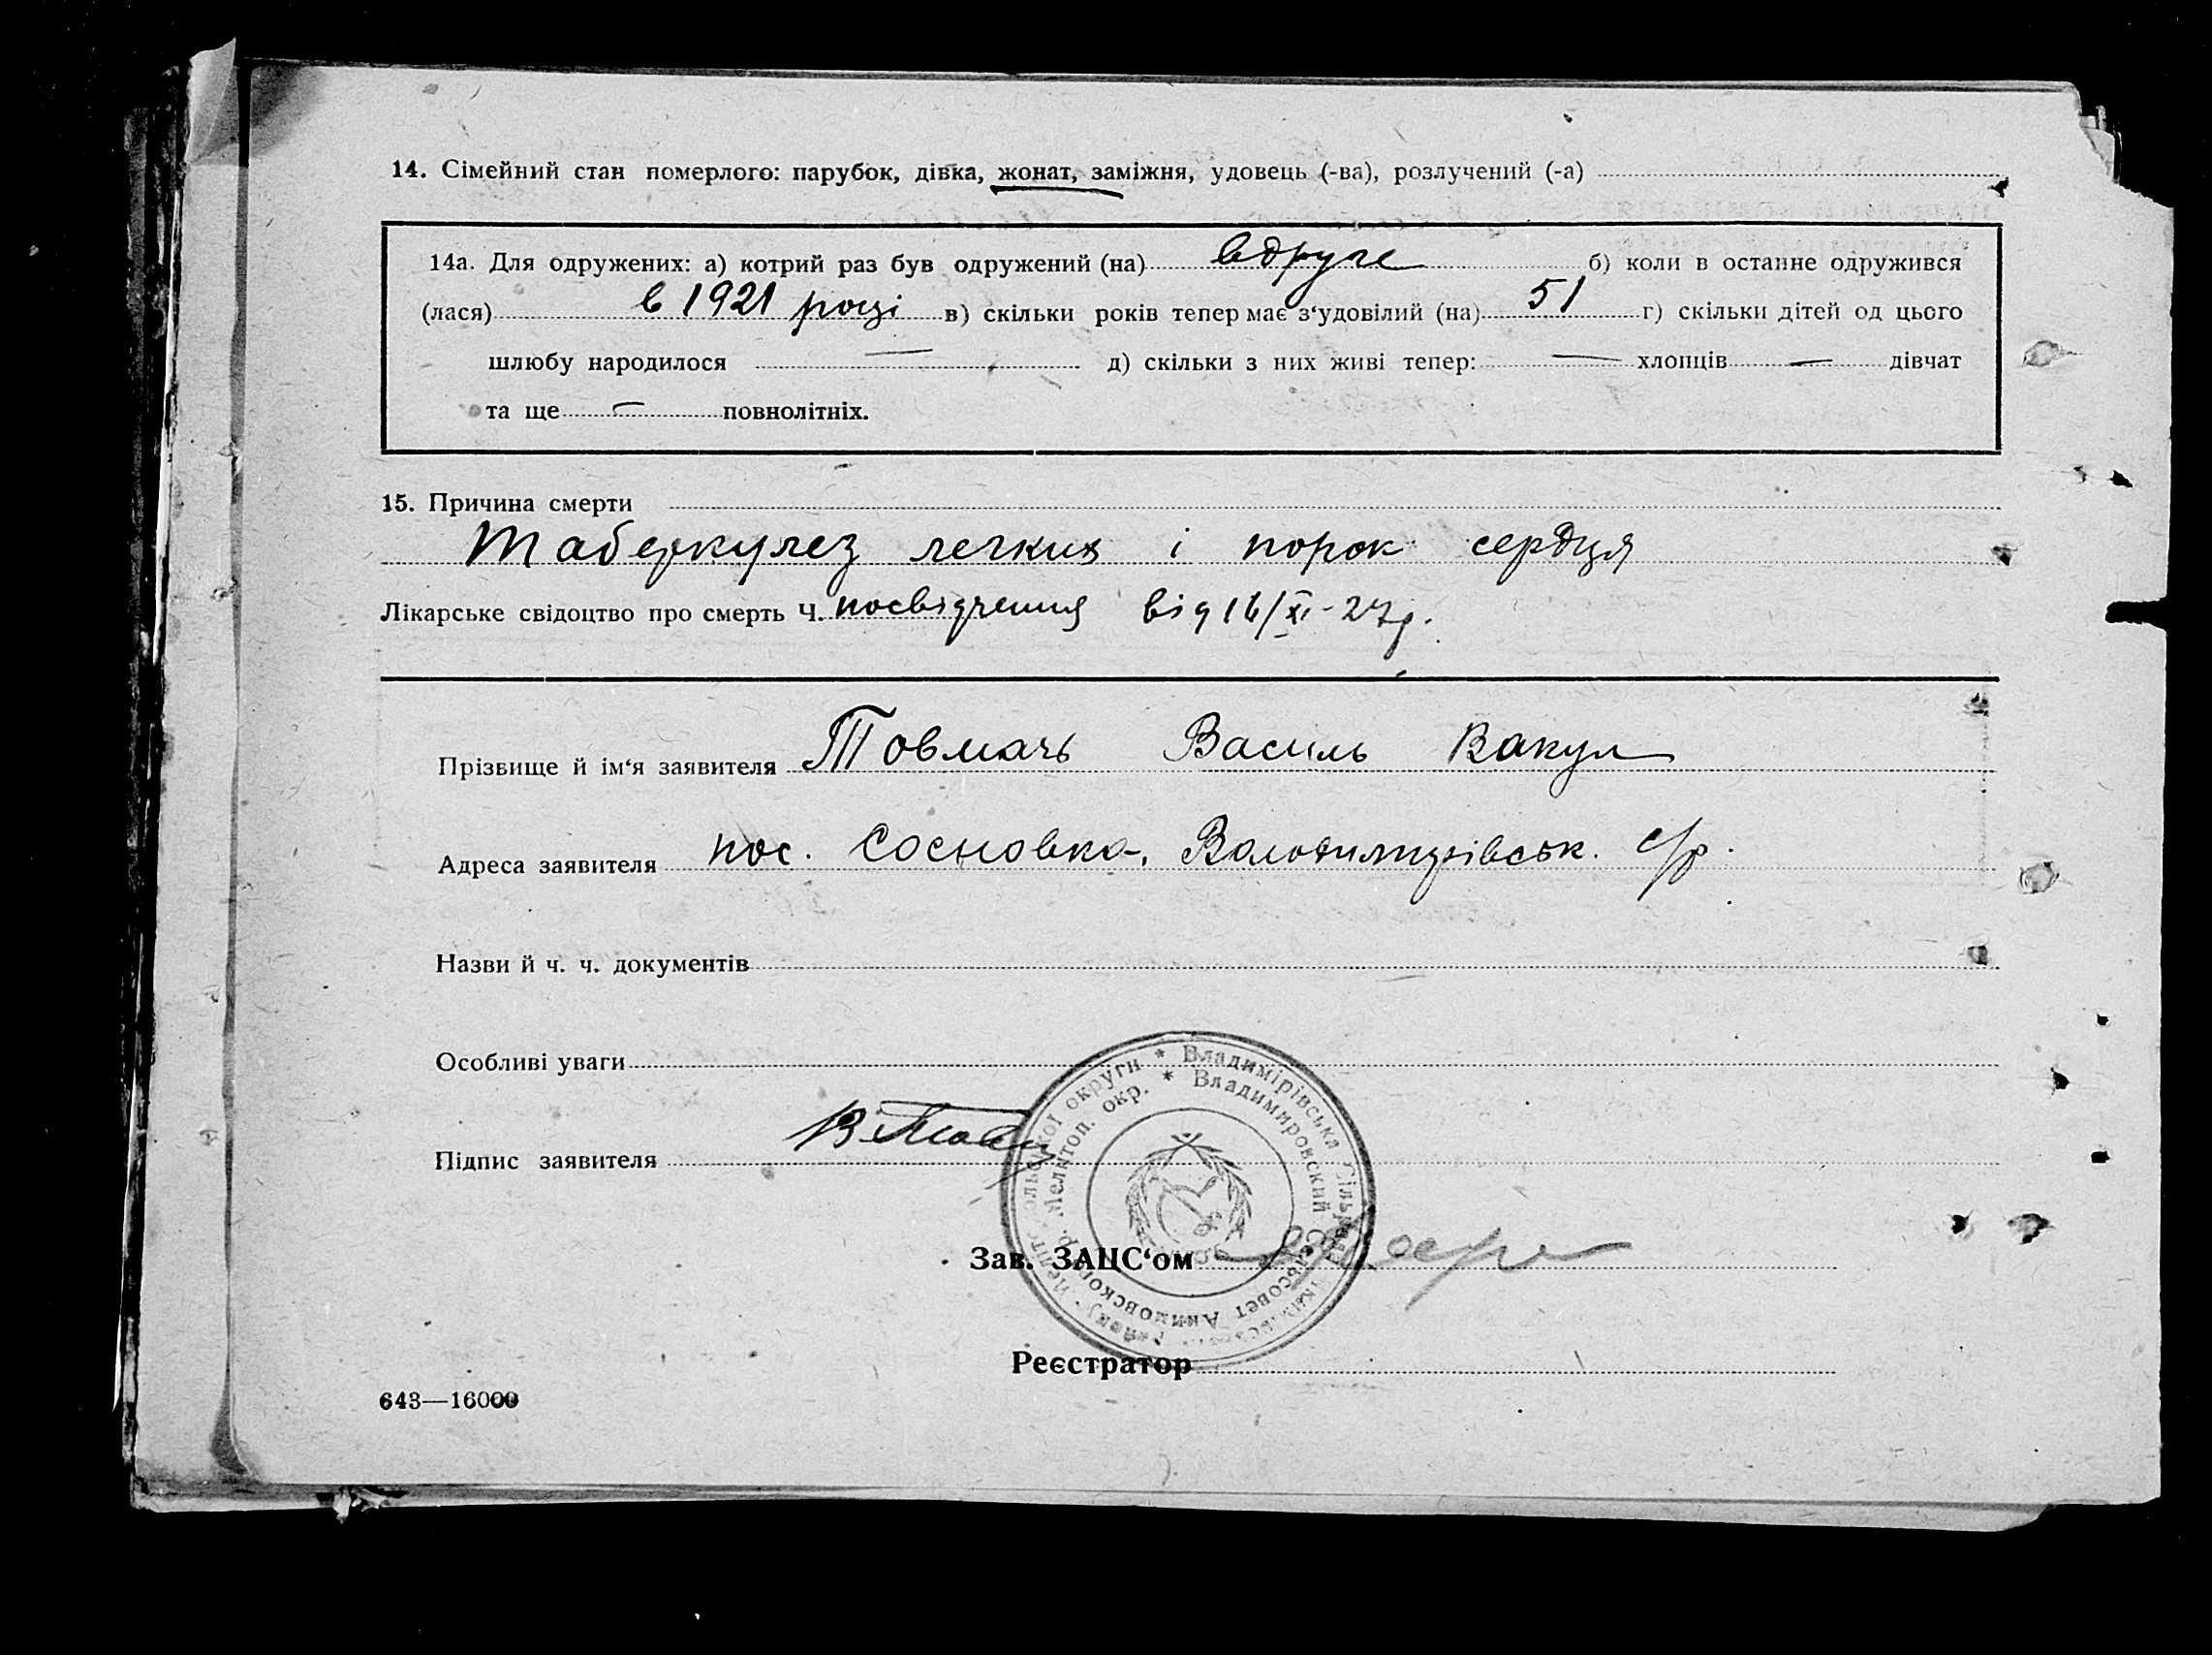 14. Сімейний стан померлого: парубок, дівка, жонат, заміжня, удовець (-ва), розлучений (-а)
14а. Для одружених: а) котрий раз був одружений (на) вдруге б) коли в останне одружився
(лася) в 1921 році в) скільки років тепер має з‘удовілий (на) 51 г) скільки дітей од цього
шлюбу народилося — д) скільки з них живі тепер: — хлопців — дівчат
та ще — повнолітніх.
15. Причина смерти
Таберкулез легких і порок сердця
Лікарське свідоцтво про смерть Ч. посвідчення від 16/XI-27р.
Прізвище й ім‘я заявителя Товмачь Василь Вакул
Адреса заявителя пос. Сосновка, Володимирівськ. с/р.
Назви й ч. ч. документів
Особливі уваги
Підпис заявителя
* Владимірівська Сільська округи
* Владимировский Сельсовет Акимовского р. Мелитоп. окр.
Зав. ЗАЦС‘ом
Реєстратор
643—16000